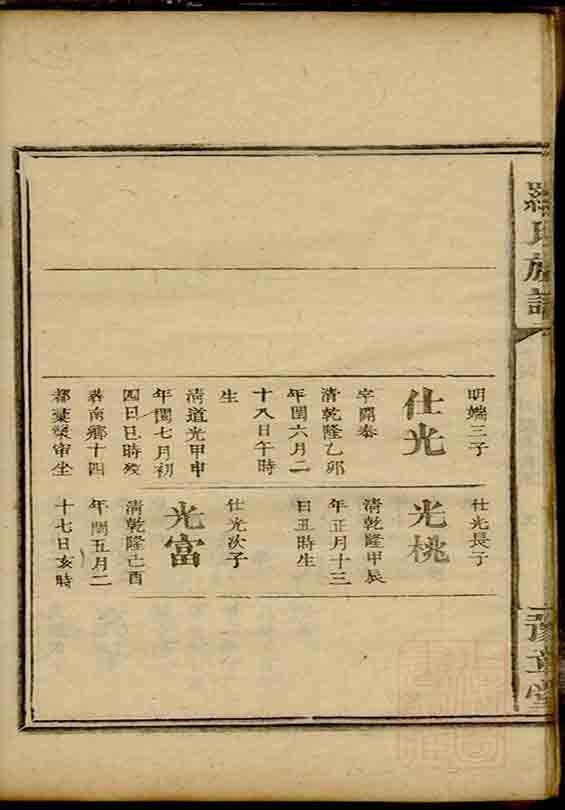 羅氏族譜
豫章堂
明端三子
仕光
字開泰
清乾隆乙卯
年閏六月二
十八日午時
生
清道光甲申
年閏七月初
四日巳時歿
葬南鄉十四
都葉
仕光長子
光桃
清乾隆甲辰
年正月十三
日丑時生
仕光次子
光富
清乾隆己酉
年閏五月二
十七日亥時